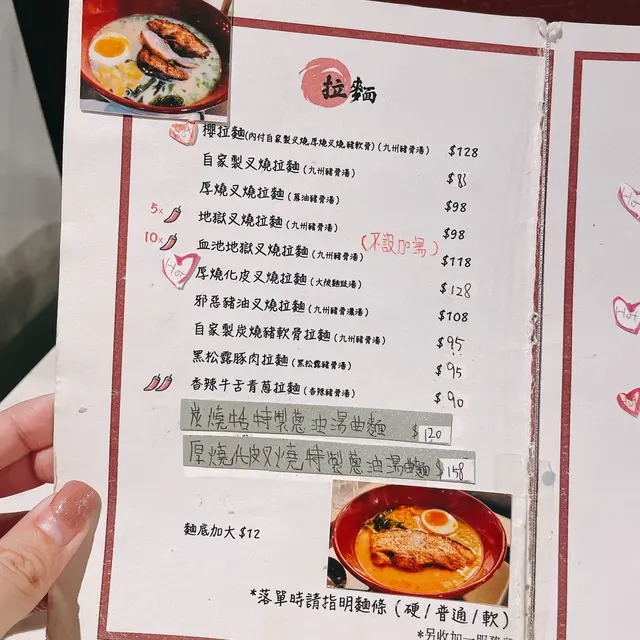 拉麵
櫻拉麵(內付自家製叉燒厚燒叉燒豬軟骨)(九州豬骨湯) $128
自家製叉燒拉麵(九州豬骨湯)
厚燒叉燒拉麵(蔥油豬骨湯) $98
5x 地獄叉燒拉麵(九州豬骨湯) $98
(不設加湯)
10x 血池地獄叉燒拉麵(九州豬骨湯) $118
Hot 厚燒化皮叉燒拉麵 $128
邪惡豬油叉燒拉麵(九州豬骨濃湯) $108
自家製炭燒豬軟骨拉麵(九州豬骨湯) $95
黑松露豚肉拉麵(黑松露豬骨湯) $95
香辣牛舌青蔥拉麵(香辣豬骨湯) $90
炭燒牛舌特製蔥油湯曲麵 $120
厚燒化皮叉燒特製蔥油湯曲麵 $158
麵底加大$12
*落單時請指明麵條(硬/普通/軟)
*另收加一服務
Hot
Hot